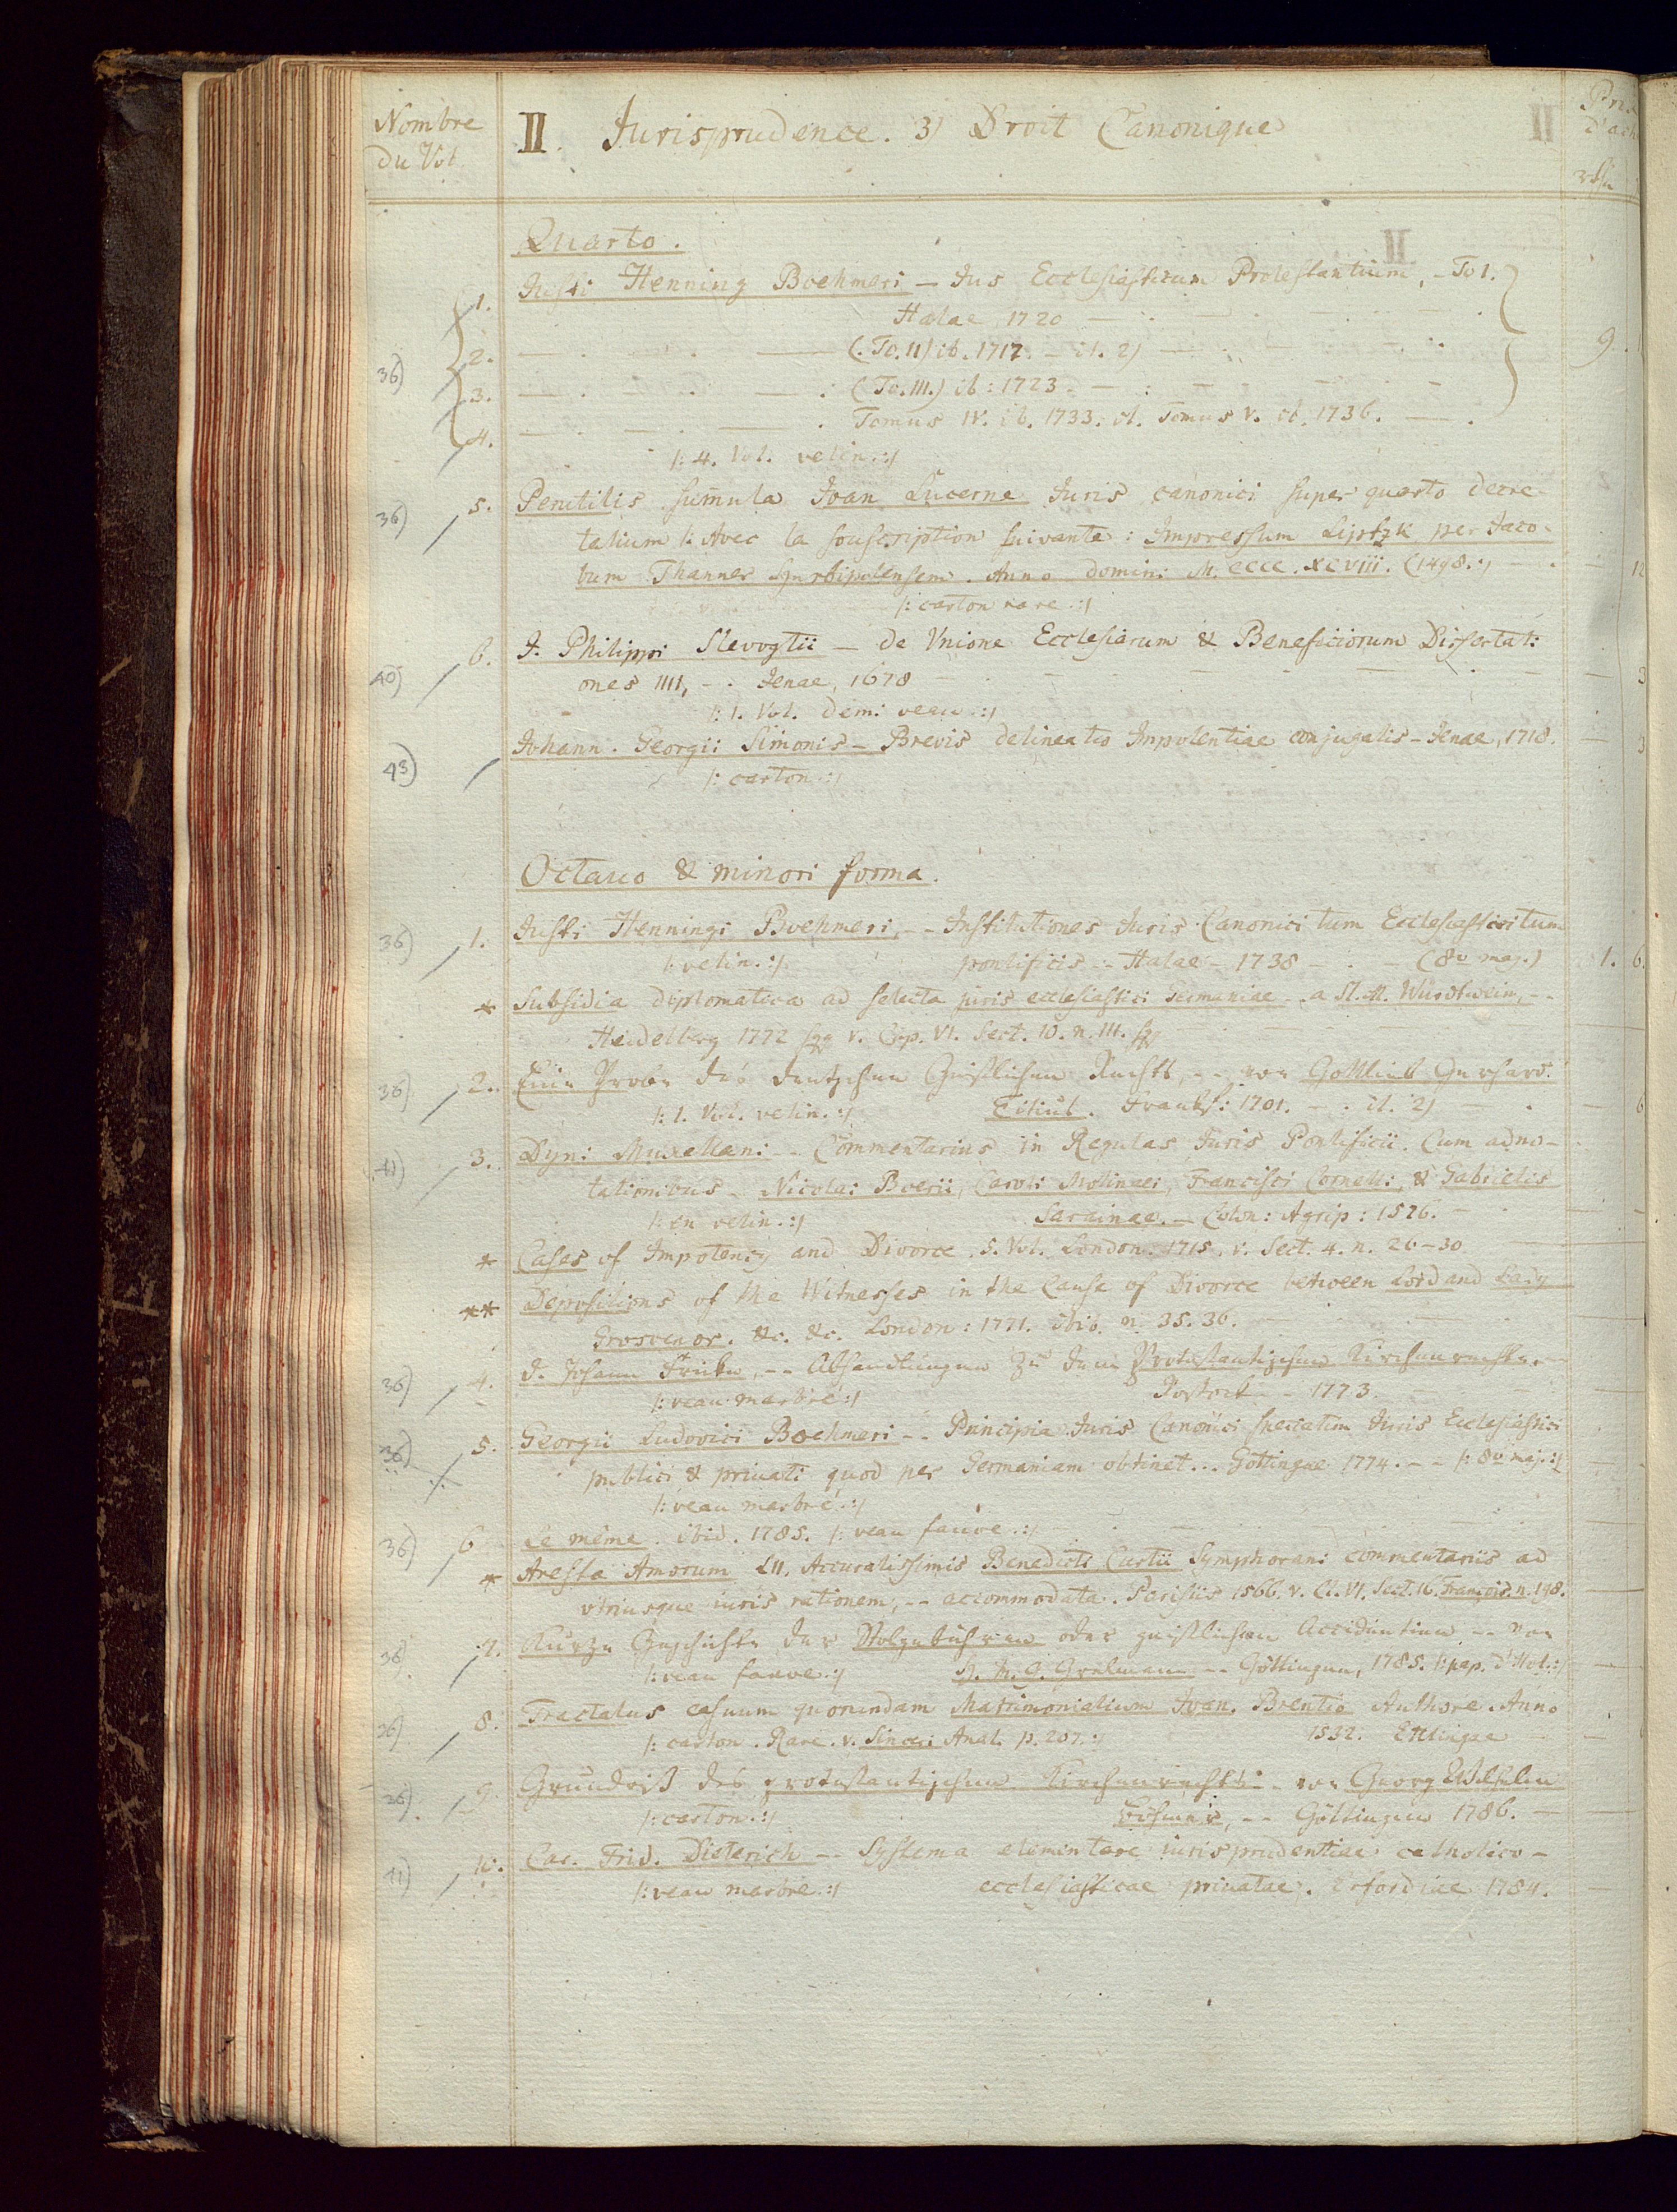 Nombre
du Vol.
II. Jurisprudence. 3) Droit Canonique
Quarto.
1. Justi Henning Boehmeri — Jus Ecclesiasticum Protestantium, - To 1.
Halae, 1720
2. (To. II) ib. 1717. — it. 2)
36)
9.
3. (To. III.) ib: 1723.
4. Tomus IV. ib. 1733. it. Tomus V. ib. 1736.
/: 4. Vol. velin. :/
36) 5. Perutilis sum̄ula Joan Lucerne Juris canonici super quarto decre-
talium /: Avec la souscription suivante: Impressum Liptzk per Jaco-
bum Thanner Hyrbipolensem. Anno domini M. cccc. xcviii. (1498. :/ 12
/: carton rare. :/
40) 6. J. Philippi Slevogtii — de Vnione Ecclesiarum & Beneficiorum Dissertati
ones IIII, - . Jenae, 1678 3
/: 1. Vol. demi veau. :/
43) Johann. Georgii Simonis — Brevis delineatio Impotentiae conjugalis - Jenae, 1718. 3
/: carton. :/
Octavo & minori forma.
36) 1. Justi Henningi Boehmeri, - - Institutiones Juris Canonici tum Ecclesiastici tum
/: velin. :/ pontificis - Halae - 1738 (8vo maj.) 1. 6.
* Subsidia diplomatica ad selecta juris ecclesiastici Germaniae - a St. A. Würdtwein, - -
Heidelberg 1772 sqq v. Cap. VI. Sect. 10. n. III. sqq
36) 2. Eine Probe des deutschen Geistlichen Rechts, - - von Gottlieb Gerhard
/: 1. Vol. velin. :/ Titius. Frankf: 1701. - . it. 2) 6
41) 3. Dyni Muxellani - - Commentarius in Regulas Juris Pontificii. Cum adno-
tationibus - Nicolai Boerii, Caroli Molinaei, Francisci Cornelli, & Gabrielis
/: en velin. :/ Sarainae. — Colon: Agrip: 1576.
* Cases of Impotency and Divorce. 5. Vol. London. 1715. v. Sect. 4. n. 26-30
** Depositions of the Witnesses in the Cause of Divorce between Lord and Lady
Grosvenor. &c. &c. London: 1771. ibid. n. 35. 36.
36) 4. D. Johann Fricke, - - Abhandlungen zu dem Protestantischen Kirchenrechte.
/: veau marbré :/ Rostock - - 1773.
36) 5. Georgii Ludovici Boehmeri - - Principia Juris Canonici speciatim Juris Ecclesiastici
publici & privati quod per Germaniam obtinet... Gottingae 1774. - - /: 8vo maj. :/
/: veau marbré. :/
36) 6 Le même. ibid. 1785. /: veau fauve. :/
* Aresta Amorum LII. Accuratissimis Benedicti Curtii Symphoriani commentariis ad
vtriusque iuris rationem, - - accommodata. Parisiis 1566. v. Cl. VI. Sect. 16. François. n. 198.
36. 7. Kurze Geschichte der Stolgebühren oder geistlichen Accidentien - - von
/: veau fauve. :/ H. M. G. Grelmann - - Göttingen, 1785. /: pap. d'Hol. :/
26) 8. Tractatus casuum quorundam Matrimonialium Joan. Brentio Authore Anno
/: carton. Rare. v. Sinceri Anal. p. 207. :/ 1532. Ettlingae
26) 9. Grundriß des protestantischen Kirchenrechts - von Georg Wilhelm
/: carton. :/ Böhmer, - - Göttingen 1786.
41) 10. Car. Frid. Dieterich - - Systema elementare iurisprudentiae catholico-
/: veau marbré. :/ ecclesiasticae privatae. Erfordiae 1784.